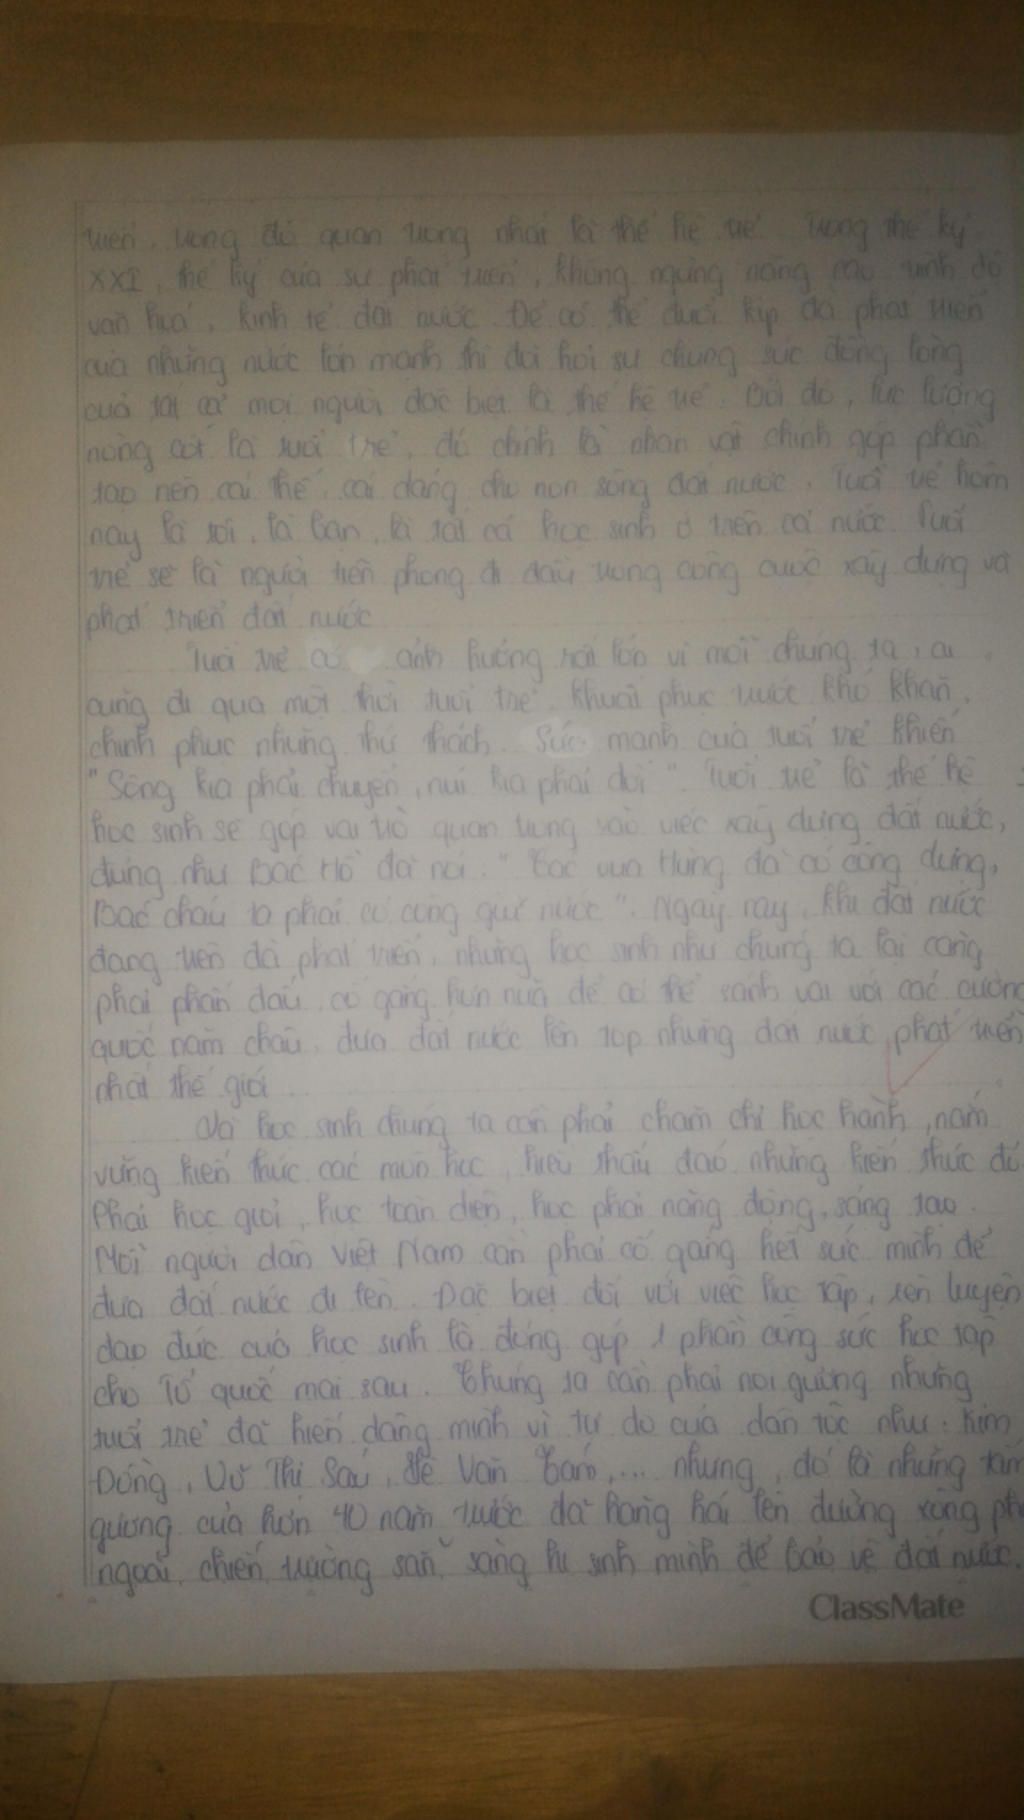 triển, trong đó quan trọng nhất là thế hệ trẻ. Trong thế kỷ
XXI, thế kỷ của sự phát triển, không ngừng nâng cao trình độ
văn hoá, kinh tế đất nước. Để có thể đuổi kịp đà phát triển
của những nước lớn mạnh thì đòi hỏi sự chung sức đồng lòng
của tất cả mọi người đặc biệt là thế hệ trẻ. Bởi đó, lực lượng
nòng cốt là tuổi trẻ, đó chính là nhân vật chính góp phần
tạo nên cái thế, cái dáng cho non sông đất nước. Tuổi trẻ hôm
nay là tôi, là bạn, là tất cả học sinh ở trên cả nước. Tuổi
trẻ sẽ là người tiên phong đi đầu trong công cuộc xây dựng và
phát triển đất nước
Tuổi trẻ có ảnh hưởng rất lớn vì mỗi chúng ta, ai
cũng đi qua một thời tuổi trẻ. Khuất phục trước khó khăn,
chinh phục những thử thách. Sức mạnh của tuổi trẻ khiến
"Sông kia phải chuyển, núi kia phải dời". Tuổi trẻ là thế hệ
học sinh sẽ góp vai trò quan trung vào việc xây dựng đất nước,
đúng như Bác Hồ đã nói: "Các vua Hùng đã có công dựng,
Bác cháu ta phải có công giữ nước". Ngày nay, khi đất nước
đang trên đà phát triển, những học sinh như chúng ta lại càng
phải phấn đấu, cố gắng hơn nữa để có thể sánh vai với các cường
quốc năm châu, đưa đất nước lên top những đất nước phát triển
nhất thế giới
Và học sinh chúng ta cần phải chăm chỉ học hành, nắm
vững kiến thức các môn học, hiểu thấu đáo những kiến thức đó
Phải học giỏi, học toàn diện, học phải năng động, sáng tạo.
Mỗi người dân Việt Nam cần phải cố gắng hết sức mình để
đưa đất nước đi lên. Đặc biệt đối với việc học tập, rèn luyện
đạo đức của học sinh là đóng góp 1 phần công sức học tập
cho Tổ quốc mai sau. Chúng ta cần phải noi gương những
tuổi trẻ đã hiến dâng mình vì tự do của dân tộc như: Kim
Đồng, Võ Thị Sáu, Lê Văn Tám,... nhưng, đó là những tấm
gương của hơn 40 năm trước đã hăng hái lên đường xông pha
ngoài chiến trường sẵn sàng hi sinh mình để bảo vệ đất nước.
ClassMate